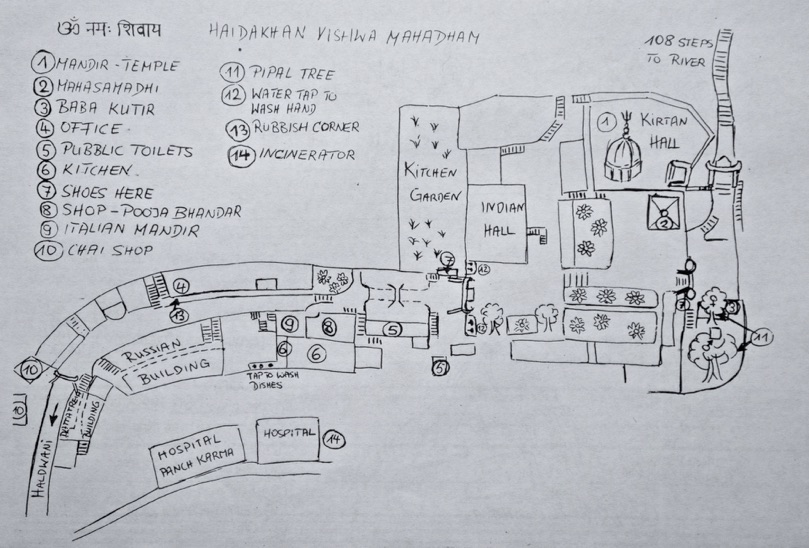 ॐ नमः शिवाय
HAIDAKHAN VISHWA MAHADHAM
1 MANDIR-TEMPLE
2 MAHASAMADHI
3 BABA KUTIR
4 OFFICE
5 PUBBLIC TOILETS
6 KITCHEN.
7 SHOES HERE
8 SHOP-POOJA BHANDAR
9 ITALIAN MANDIR
10 CHAI SHOP
11 PIPAL TREE
12 WATER TAP TO
WASH HAND
13 RUBBISH CORNER
14 INCINERATOR
108 STEPS
TO RIVER
1
KIRTAN
HALL
KITCHEN
GARDEN
INDIAN
HALL
2
7
12
4
13
3
11
9
8
5
6
6
5
RUSSIAN
BUILDING
TAP TO WASH
DISHES
10
BUILDING
HALDWANI
HOSPITAL
PANCH KARMA
HOSPITAL
14